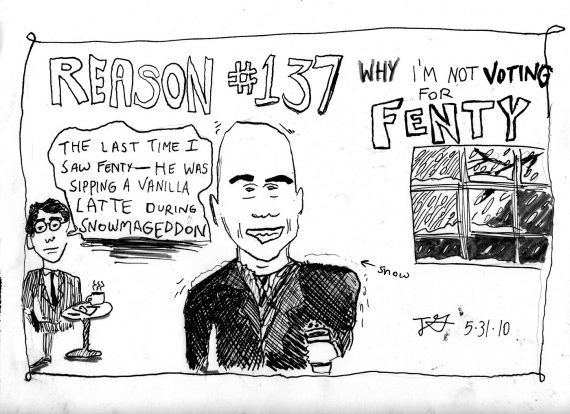 REASON #137
WHY I'M NOT VOTING
FOR
FENTY
THE LAST TIME I
SAW FENTY— HE WAS
SIPPING A VANILLA
LATTE DURING
SNOWMAGEDDON
← SNOW
5-31-10